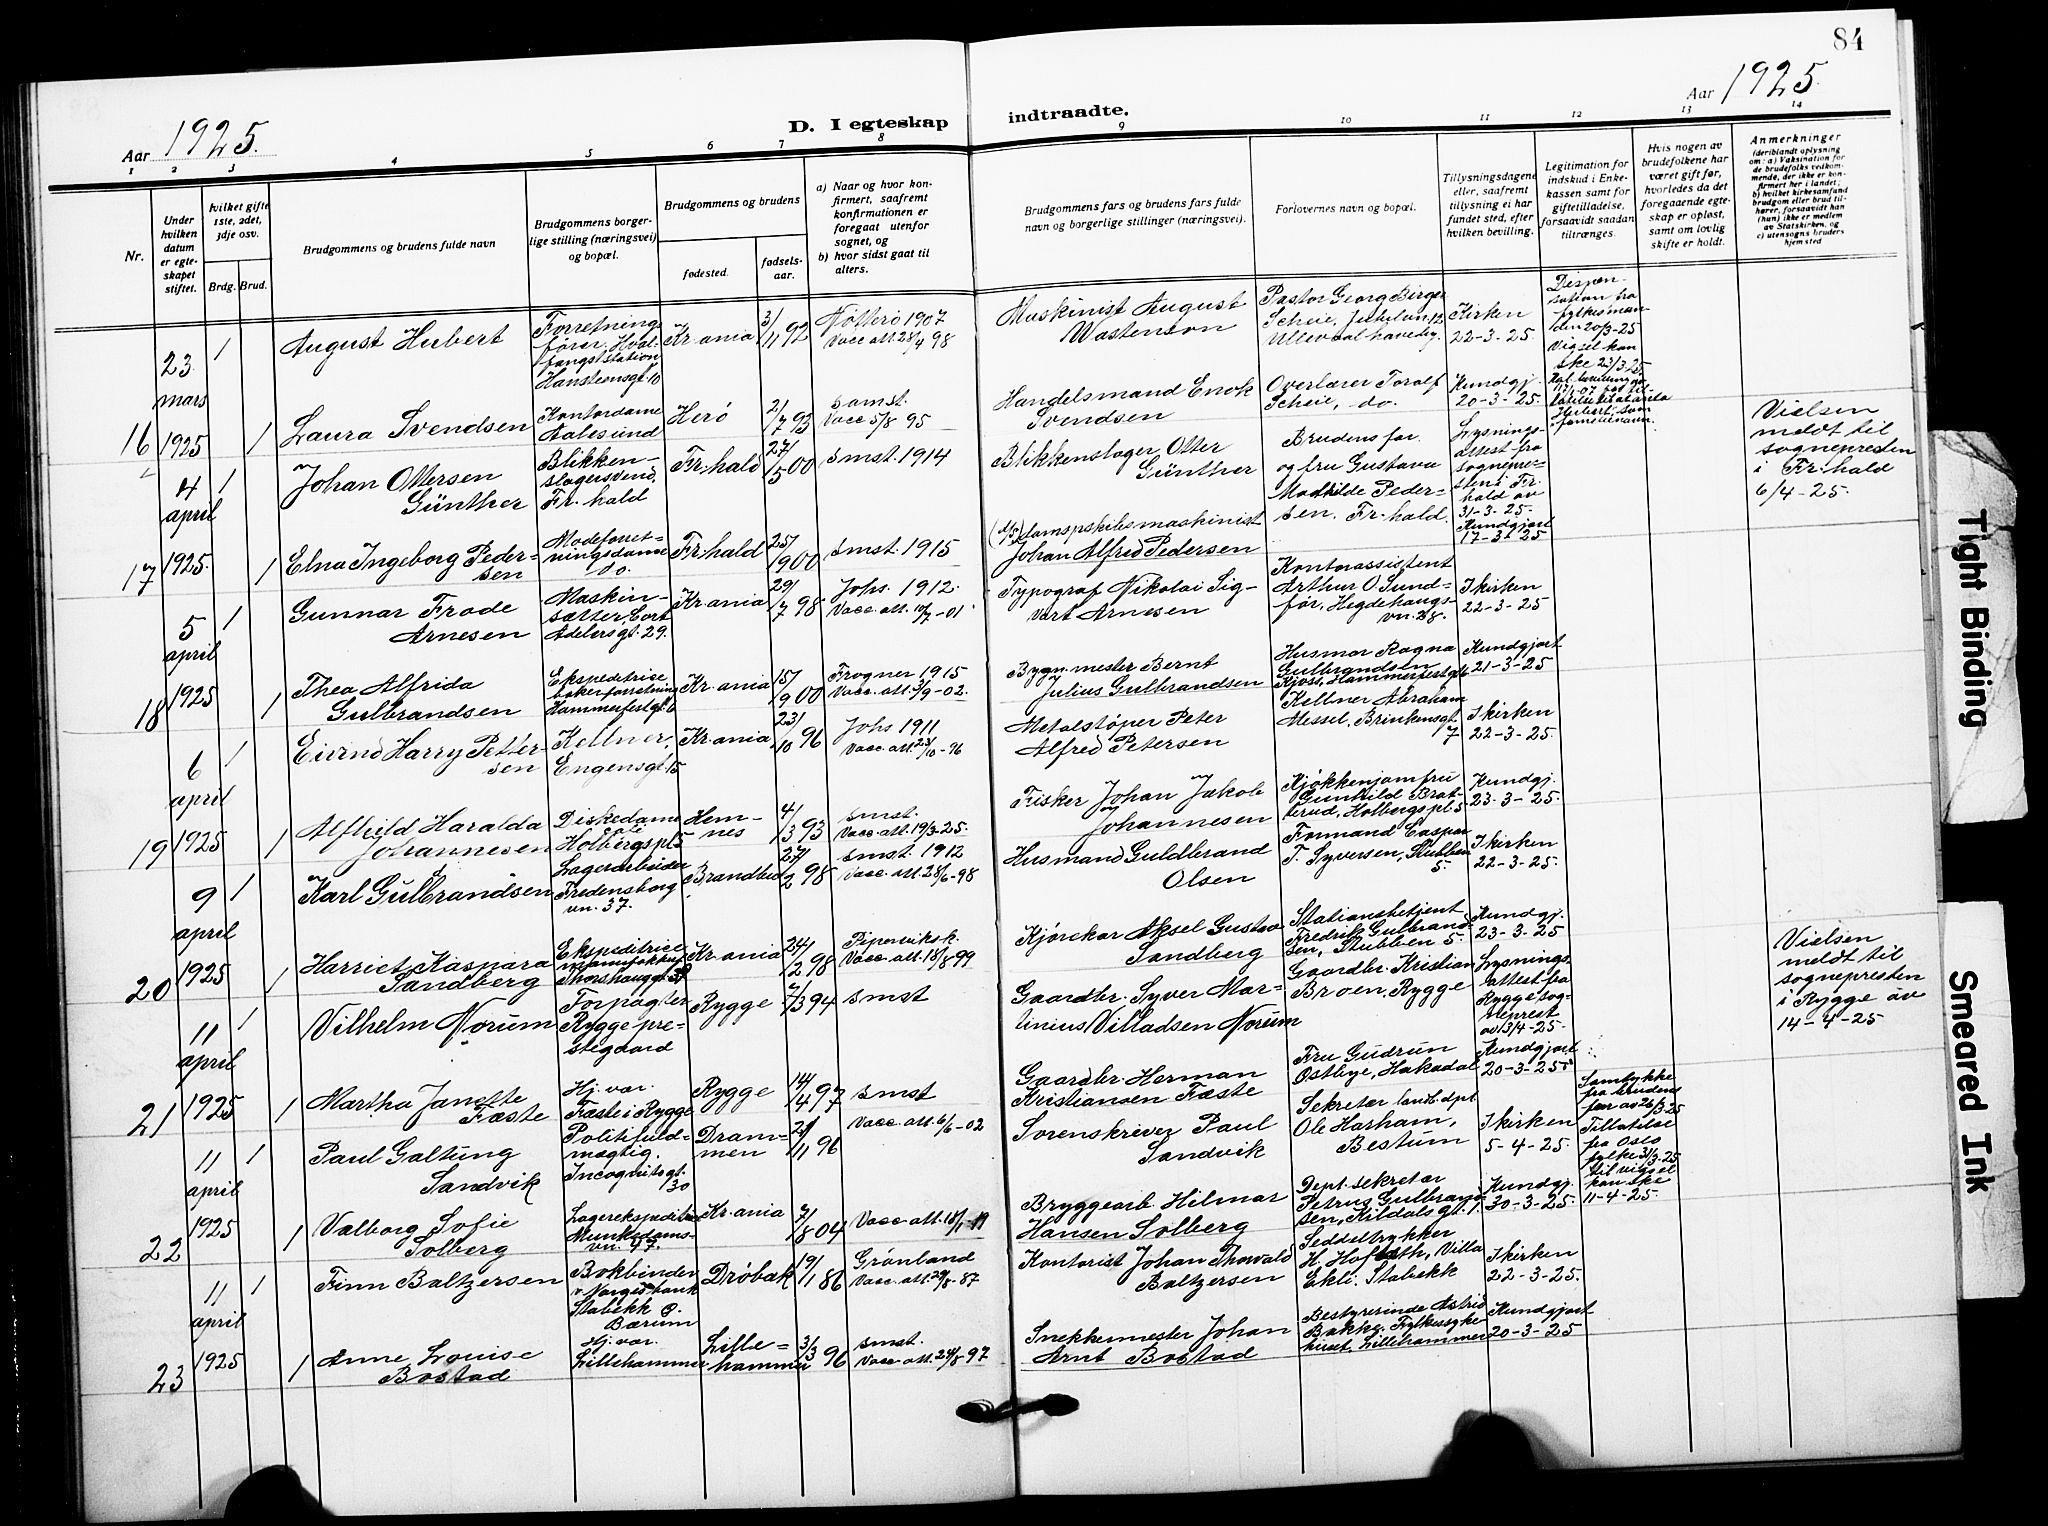 84
Aar 1925.
D. I egteskap
indtraadte.
Aar 1925.
1 2 3 4 5 6 7 8 9 10 11 12 13 14
Nr.
Under hvilken datum er egteskapet stiftet.
hvilket gifte 1ste, 2det, 3dje osv.
Brdg. Brud.
Brudgommens og brudens fulde navn
Brudgommens borgerlige stilling (næringsvei) og bopæl.
Brudgommens og brudens
fødested.
fødselsaar.
a) Naar og hvor konfirmert, saafremt konfirmationen er foregaat utenfor sognet, og
b) hvor sidst gaat til alters.
Brudgommens fars og brudens fars fulde navn og borgerlige stillinger (næringsvei).
Forlovernes navn og bopæl.
Tillysningsdagene eller, saafremt tillysning ei har fundet sted, efter hvilken bevilling.
Legitimation for indskud i Enkekassen samt for giftetilladelse, forsaavidt saadan tiltrænges.
Hvis nogen av brudefolkene har været gift før, hvorledes da det foregaaende egteskap er opløst, samt om lovlig skifte er holdt.
Anmerkninger
(deriblandt oplysning om: a) Vaksination for de brudefolks vedkommende, der ikke er konfirmert her i landet; b) hvilket kirkesamfund brudgom eller brud tilhører, forsaavidt han (hun) ikke er medlem av Statskirken, og c) utensogns bruders hjemsted
16
23 mars 1925
1
August Hubert
Forretningsfører, Hvalfangststation Hansteensgt. 10
Kr.ania
3/11 92
Nøtterø 1907
Vacc. att. 28/4 98
Maskinist August Wastenson
Pastor Georg Birger Scheie, Jutulvn. 12 Ullevaal haveby.
I kirken
22-3-25.
Dispensation fra fylkesmanden 20/3-25
Vigsel kan ske 23/3-25.
1
Laura Svendsen
Kontordame Aalesund
Herø
2/7 93
smst.
Vacc 5/8 95
Handelsmand Enok Svendsen
Overlærer Toralf Scheie, do.
Kundgj.
20-3-25.
17
4 april 1925.
1
Johan Ottersen Günther
Blikkenslagersvend, Fr. hald
Fr. hald
27/5 00
smst. 1914
Blikkenslager Otter Günther
Brudens far og fru Gustava Mathilde Pedersen. Fr. hald.
Lysningsattest fra sognepresten i Fr. hald av 31-3-25.
Vielsen meldt til sognepresten i Fr. hald 6/4-25.
1
Elna Ingeborg Pedersen
Modeforretningsdame do.
Fr. hald
25/9 00
smst. 1915
Dampskibsmaskinist Johan Alfred Pedersen
Kundgjort
17-3-25
18
5 april 1925
1
Gunnar Frode Arnesen
Maskinsætter, Cort Adelersgt. 29.
Kr.ania
29/7 98
Johs. 1912.
Vacc. att. 10/7-01
Typograf Nikolai Sigvart Arnesen
Kontorassistent Arthur O. Sundfør, Hegdehaugsvn. 28.
I kirken
22-3-25
1
Thea Alfrida Gulbrandsen
Ekspeditrice bakerforretning Hammerfestgt. 6
Kr.ania
15/9 00
Frogner 1915
Vacc. att. 3/9-02.
Bygn.mester Bernt Julius Gulbrandsen
Husmor Ragna Gulbrandsen Kjoss, Hammerfestgt. 6
Kundgjort
21-3-25
19
6 april 1925
1
Eivind Harry Pettersen
Kellner, Engensgt. 15
Kr.ania
23/10 96
Johs 1911
Vacc. att. 23/10-96
Metalstøper Peter Alfred Petersen
Kellner Abraham Messel, Brinkensgt. 7
I kirken
22-3-25.
1
Alfhild Haralda Johannesen
Diskedame Holbergspl. 5
Hemnes
4/3 93
smst.
Vacc. att. 19/3-25.
Fisker Johan Jakob Johannesen
Kjøkkenjomfru Gunhild Bratterud, Holbergspl. 5
Kundgj.
23-3-25.
20
9 april 1925
1
Karl Gulbrandsen
Lagerarbeider Fredensborgvn. 37.
Brandbu
27/2 98
smst. 1912
Vacc. att. 28/6-98
Husmand Guldbrand Olsen
Formand Casper T. Syversen, Stubben 5.
I kirken
22-3-25.
1
Harriet Kaspara Sandberg
Ekspeditrice
Kr.ania
24/2 98
Piperviksk.
Vacc. att. 18/8 99
Kjørekar Aksel Gustav Sandberg
Stationsbetjent Fredrik Gulbrandsen, Stubben 5.
Kundgj.
23-3-25
21
11 april 1925
1
Vilhelm Norum
Forpagter Rygge prestegaard
Rygge
7/3 94
smst
Gaardbr. Syver Martinius Villadsen Norum
Gaardbr. Kristian Broen, Rygge
Lysningsattest fra Rygge sogneprest av 13/4-25.
Vielsen meldt til sognepresten i Rygge av 14-4-25
1
Martha Janette Fæste
Hj. vær. Fæste i Rygge
Rygge
14/4 97
smst
Gaardbr. Herman Kristiansen Fæste
Fru Gudrun Østbye, Hakadal
Kundgjort
20-3-25
22
11 april 1925
1
Paul Galtung Sandvik
Politifuldmægtig. Incognitogt. 30
Drammen
21/11 96
Vacc. att. 6/6-02
Sorenskriver Paul Sandvik
Sekretær landb. dpt Ole Harham, Bestum
I kirken
5-4-25
Samtykke fra brudens far av 26/3-25
Tillatelse fra Oslo fylke 31/3-25 til vigsel kan ske 11-4-25.
1
Valborg Sofie Solberg
Lagerekspeditrice Munkedamsvn. 47.
Kr.ania
7/8 04
Vacc. att. 18/1-19
Bryggearb. Hilmar Hansen Solberg
Dept. sekretær Petrus Gulbrandsen, Kildalsgt. 1.
Kundgj.
30-3-25.
23
11 april 1925
1
Finn Baltzersen
Bokbinder v. Norges bank Stabekk Bærum
Drøbak
19/1 86
Grønland
Vacc. att. 29/8-87
Kontorist Johan Thorvald Baltzersen
Seddeltrykker Villa Ekli, Stabekk
I kirken
22-3-25.
1
Anne Louise Bostad
Hj. vær. Lillehammer
Lillehammer
3/3 96
smst.
Vacc. att. 24/8 97
Snekkermester Johan Arnt Bostad
Bestyrerinde Astrid Bakke, Fylkessykehuset, Lillehammer
Kundgjort
20-3-25
Tight Binding
Smeared Ink